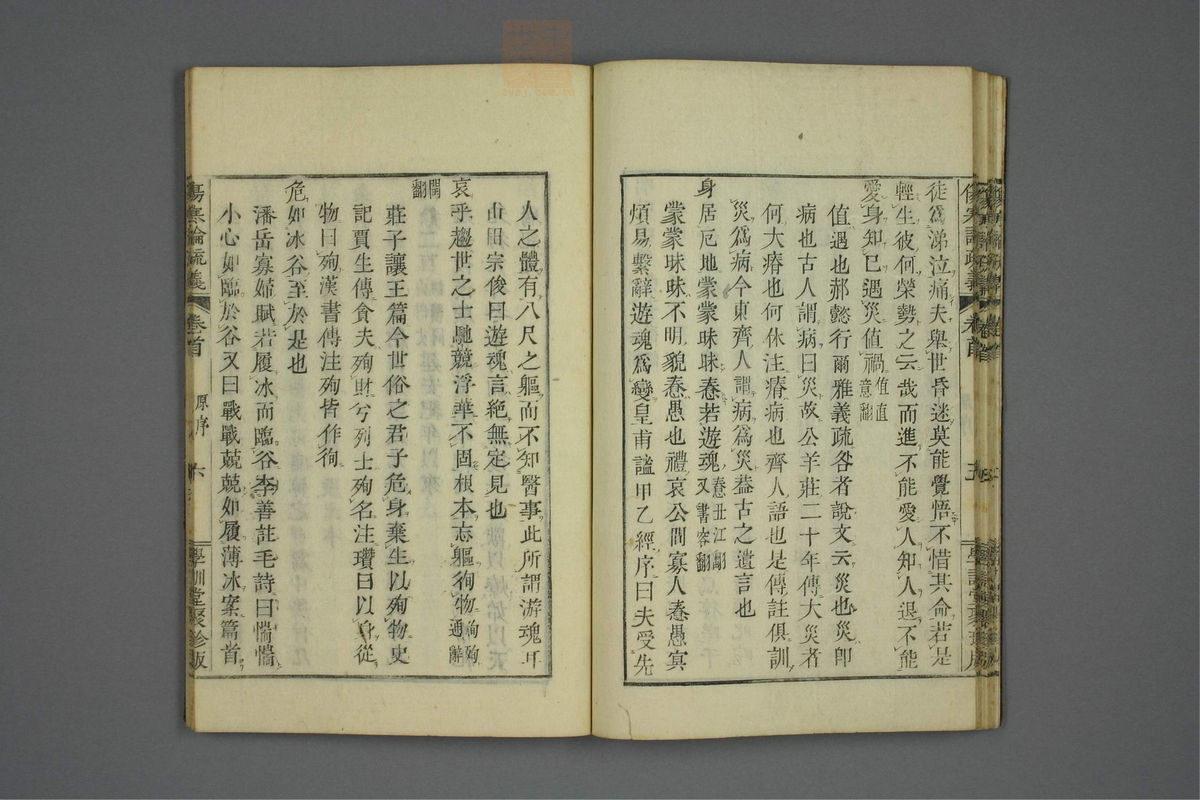 徒爲涕泣痛夫舉世昏迷莫能覺悟不惜其命若是
輕生彼何榮勢之云哉而進不能愛人知人退不能
愛身知己遇災值禍值直意翻
值遇也郝懿行爾雅義疏咎者說文云災也災卽
病也古人謂病曰災故公羊莊二十年傳大災者
何大瘠也何休注瘠病也齊人語也是傳註俱訓
災爲病今東齊人謂病爲災葢古之遺言也
身居厄地蒙蒙昧昧惷若遊魂惷丑江翻又書容翻
蒙蒙昧昧不明貌惷愚也禮哀公問寡人惷愚冥
煩易繫辭遊魂爲變皇甫謐甲乙經序曰夫受先
人之體有八尺之軀而不知醫事此所謂游魂耳
山田宗俊曰遊魂言絕無定見也
哀乎趨世之士馳競浮華不固根本忘軀徇物徇殉通辭
閏翻
莊子讓王篇今世俗之君子危身棄生以殉物史
記賈生傳貪夫殉財兮列士殉名注瓚曰以身從
物曰殉漢書傳注殉皆作徇
危如冰谷至於是也
潘岳寡婦賦若履冰而臨谷李善註毛詩曰惴惴
小心如臨於谷又曰戰戰兢兢如履薄冰案篇首
傷寒論疏義
卷首
原序
六
學訓堂聚珍版